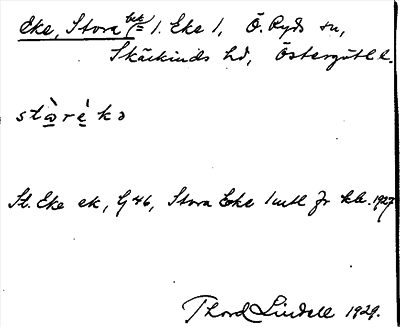 Eke, Stora (= 1. Eke 1, Ö. Ryds sn,
Skärkinds hd, Östergötl. l.
stɷ̀ré̱kə
St. Eke ek, G 46, Stora Eke 1 mtl fr kb. 1927
Thord Lindell 1929.